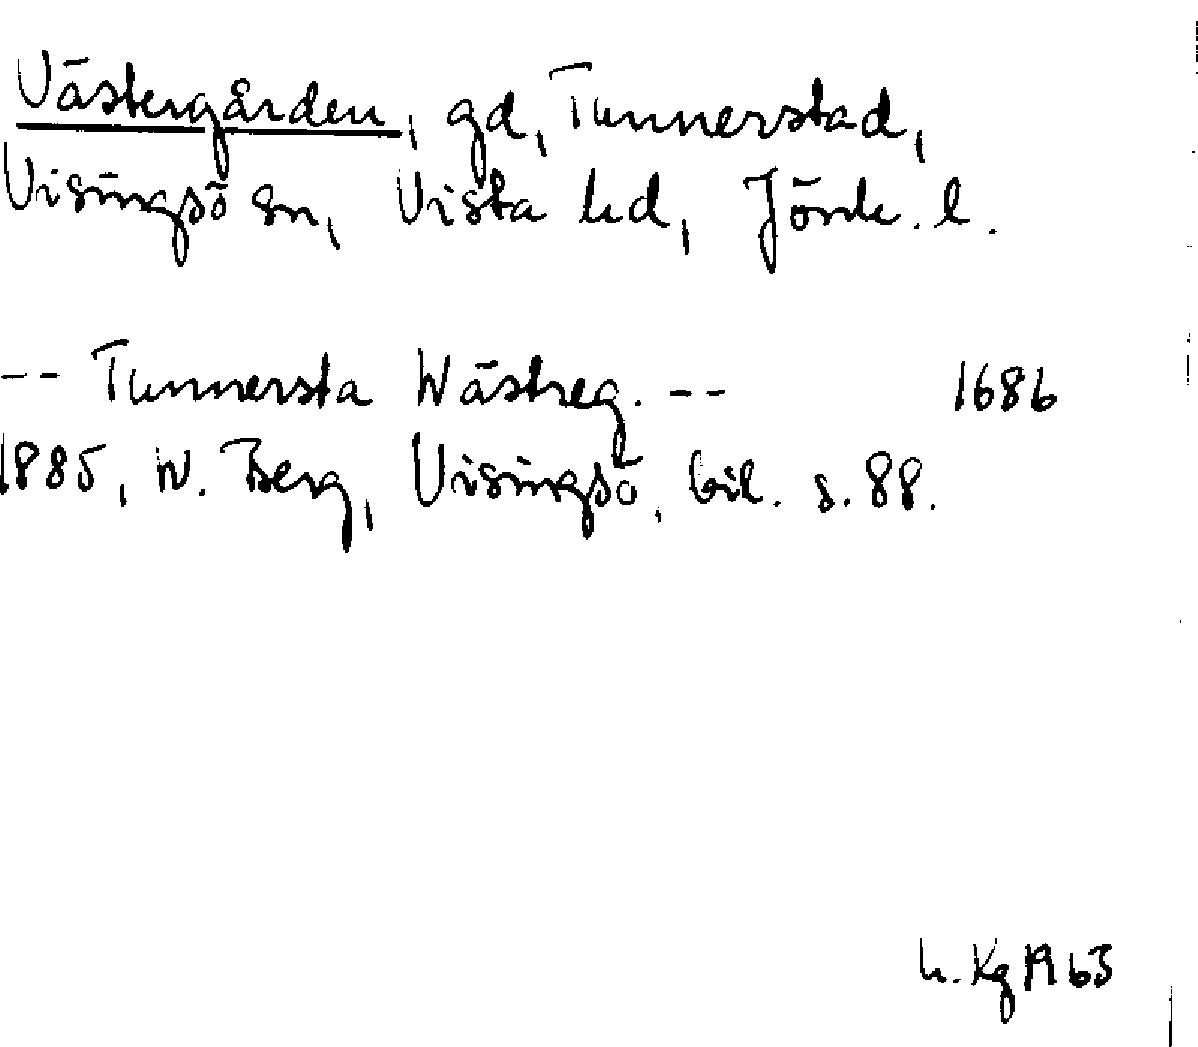 Västergården, gd, Tunnerstad,
Visingsö sn, Vista hd, Jönk. l.
-- Tunnersta Wästreg. -- 1686
1885, W. Berg, Visingsö, bil. s. 88.
h. Kg 1963